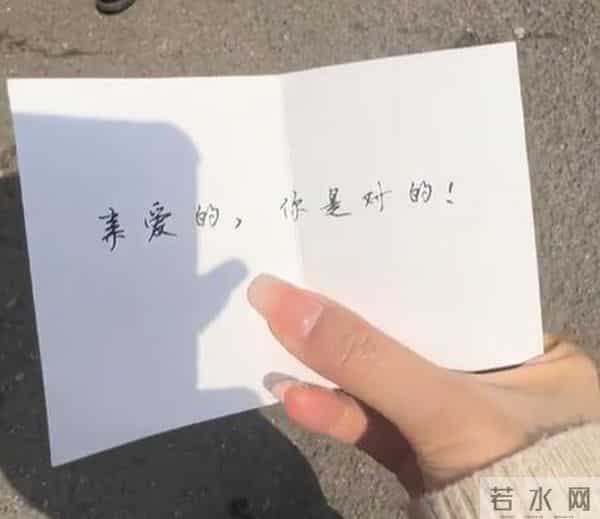 亲爱的，你是对的！
若水网